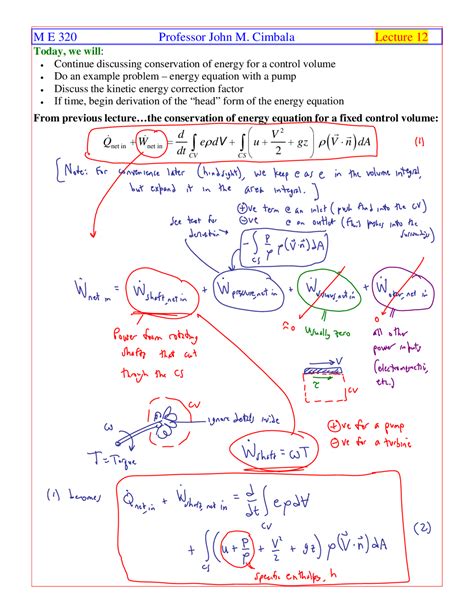 M E 320 Professor John M. Cimbala Lecture 12
Today, we will:
• Continue discussing conservation of energy for a control volume
• Do an example problem – energy equation with a pump
• Discuss the kinetic energy correction factor
• If time, begin derivation of the “head” form of the energy equation
From previous lecture…the conservation of energy equation for a fixed control volume:
Q̇ net in + Ẇ net in = d/dt ∫CV eρdV + ∫CS (u + V²/2 + gz) ρ(V⃗·n⃗)dA (1)
[Note: For convenience later (hindsight), we keep e as e in the volume integral,
but expand it in the area integral.]
⊕ve term @ an inlet (push fluid into the CV)
⊖ve @ an outlet (fluid pushes into the
surroundings)
See text for
derivation
-∫CS P/ρ ρ(V⃗·n⃗)dA
Ẇ net in = Ẇ shaft, net in + Ẇ pressure, net in + Ẇ viscous, net in + Ẇ other, net in
≈0 Usually zero 0
Power from rotating
shafts that cut
through the CS
all other
power inputs
(electromagnetic,
etc.)
V
τ
CV
CV
ignore details inside
ω
T = Torque
Ẇ shaft = ωT
⊕ve for a pump
⊖ve for a turbine
(1) becomes Q̇ net, in + Ẇ shaft, net in = d/dt ∫CV eρdV
+ ∫CS (u + P/ρ + V²/2 + gz) ρ(V⃗·n⃗)dA (2)
specific enthalpy, h